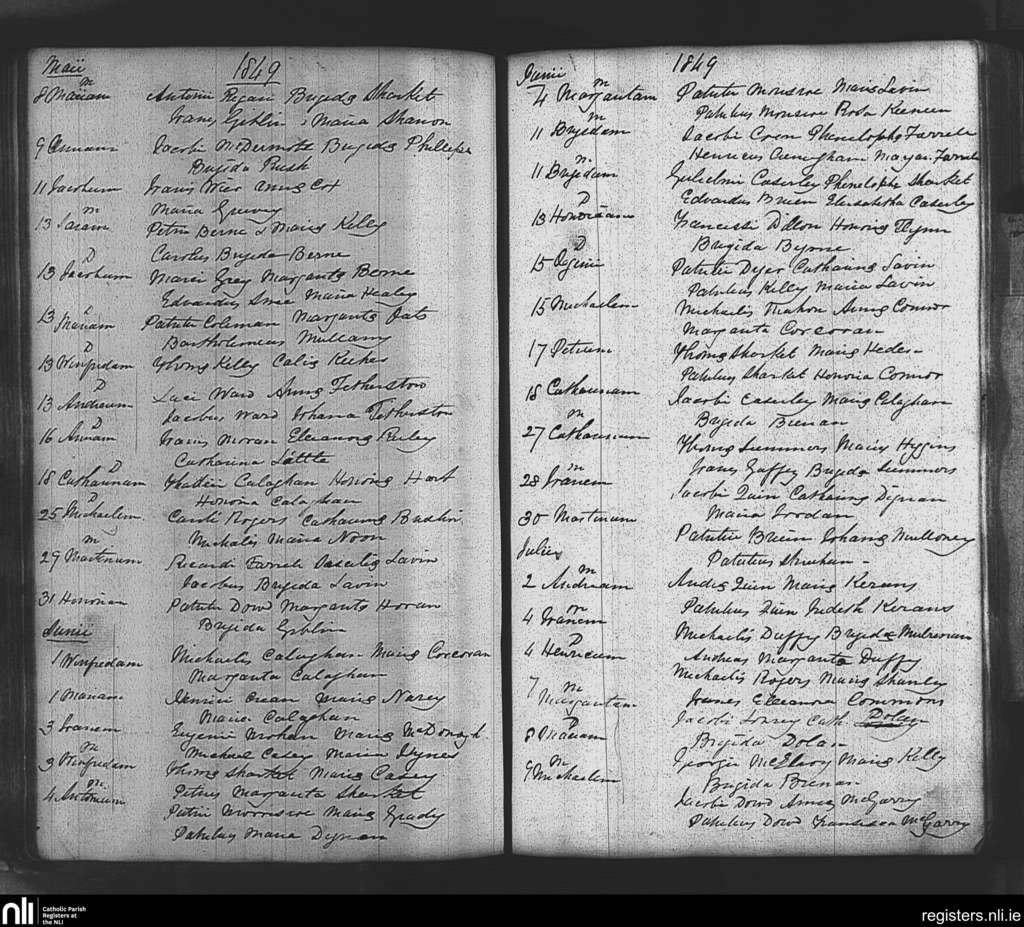 Maii 1849
m
8 Mariam Antonii Regan Brigida Sharket
Joanes Giblin Maria Shanon
9 Annam Jacobi McDermott Brigida
Brigida Rush
11 Jacobum Joanis Wier Anna Cox
Maria
m
13 Saram Petri Berne & Maria Kelly
Carolus Brigida Berne
D
13 Jacobum Marci Grey Margarita Berne
Edvardus Maria Healey
13 Mariam Patritii Coleman Margarita
Bartholomeus Mullany
D
13 Winfredam Thoma Kelly
D
13 Andream Luci Ward Anna Fetherston
Jacobus Ward Johana Fetherston
D
16 Annam Joanis Moran Eleanora
Catharina Little
D
18 Catharinam Calaghan Honoria Hart
Honoria Calaghan
D
25 Michaelem Caroli Rogers Catharina
Michalis Maria Noon
m
29 Martinum Ricardi Farrell Lavin
Jacobus Brigida Lavin
31 Honoriam Patritii Dowd Margarita Horan
Brigida Giblin
Junii
1 Winfredam Michaelis Calaghan Maria Corcoran
Margarita Calaghan
1 Mariam Crean Maria Narey
Maria Calaghan
3 Joanem Eugenii Maria McDonagh
Michael Casey Maria
m
3 Winfredam Thoma Sharket Maria Casey
Petrus Margarita Sharket
m
4 Antonium Petri Morrisroe Maria Grady
Patritius Maria Dignan
Junii 1849
m
4 Margaritam Patritii Monsroe Maria Lavin
Patritius Monsroe Rosa Keenen
m
11 Brigidam Jacobi Coen Phenelopha Farrell
Henricus Cunigham Farrell
m
11 Brigidam Gulielmi Caserley Phenelopha Sharket
Edvardus Brien Elisabetha Caserley
D
13 Honoriam Francisci Dillon Honoria Flynn
Brigida Byrne
D
15 Patritii Dyer Catharina Lavin
Patritius Kelly Maria Lavin
15 Michaelem Michaelis Mahon Anna Connor
Margarita Corcoran
17 Petrum Thoma Sharket Maria Hedes
Patritius Sharket Honoria Connor
18 Catharinam Jacobi Caserley Maria Calaghan
Brigida Brenan
m
27 Catharinam Thoma Summers Maria Higgins
Joanes Gaffey Brigida Summers
m
28 Joanem Jacobi Quin Catharina Dignan
Maria Jordan
30 Martinum Patritii Brien Johana Mulloney
Patritius
Julii
m
2 Andream Andrea Quin Maria Kerans
Patritius Quin Judith Kerans
m
4 Joanem Michaelis Duffy Brigida
Andreas Margarita Duffy
D
4 Henricum Michaelis Rogers Maria Shanley
Joannes Eleanora Commons
m
7 Margaritam Jacobi Cath. Dolan
Brigida Dolan
D
8 Mariam Georgii McElroy Maria Kelly
Brigida Brenan
m
9 Michaelem Jacobi Dowd Anna McGarry
Patritius Dowd Francisca McGarry
nli Catholic Parish
Registers at
the NLI
registers.nli.ie